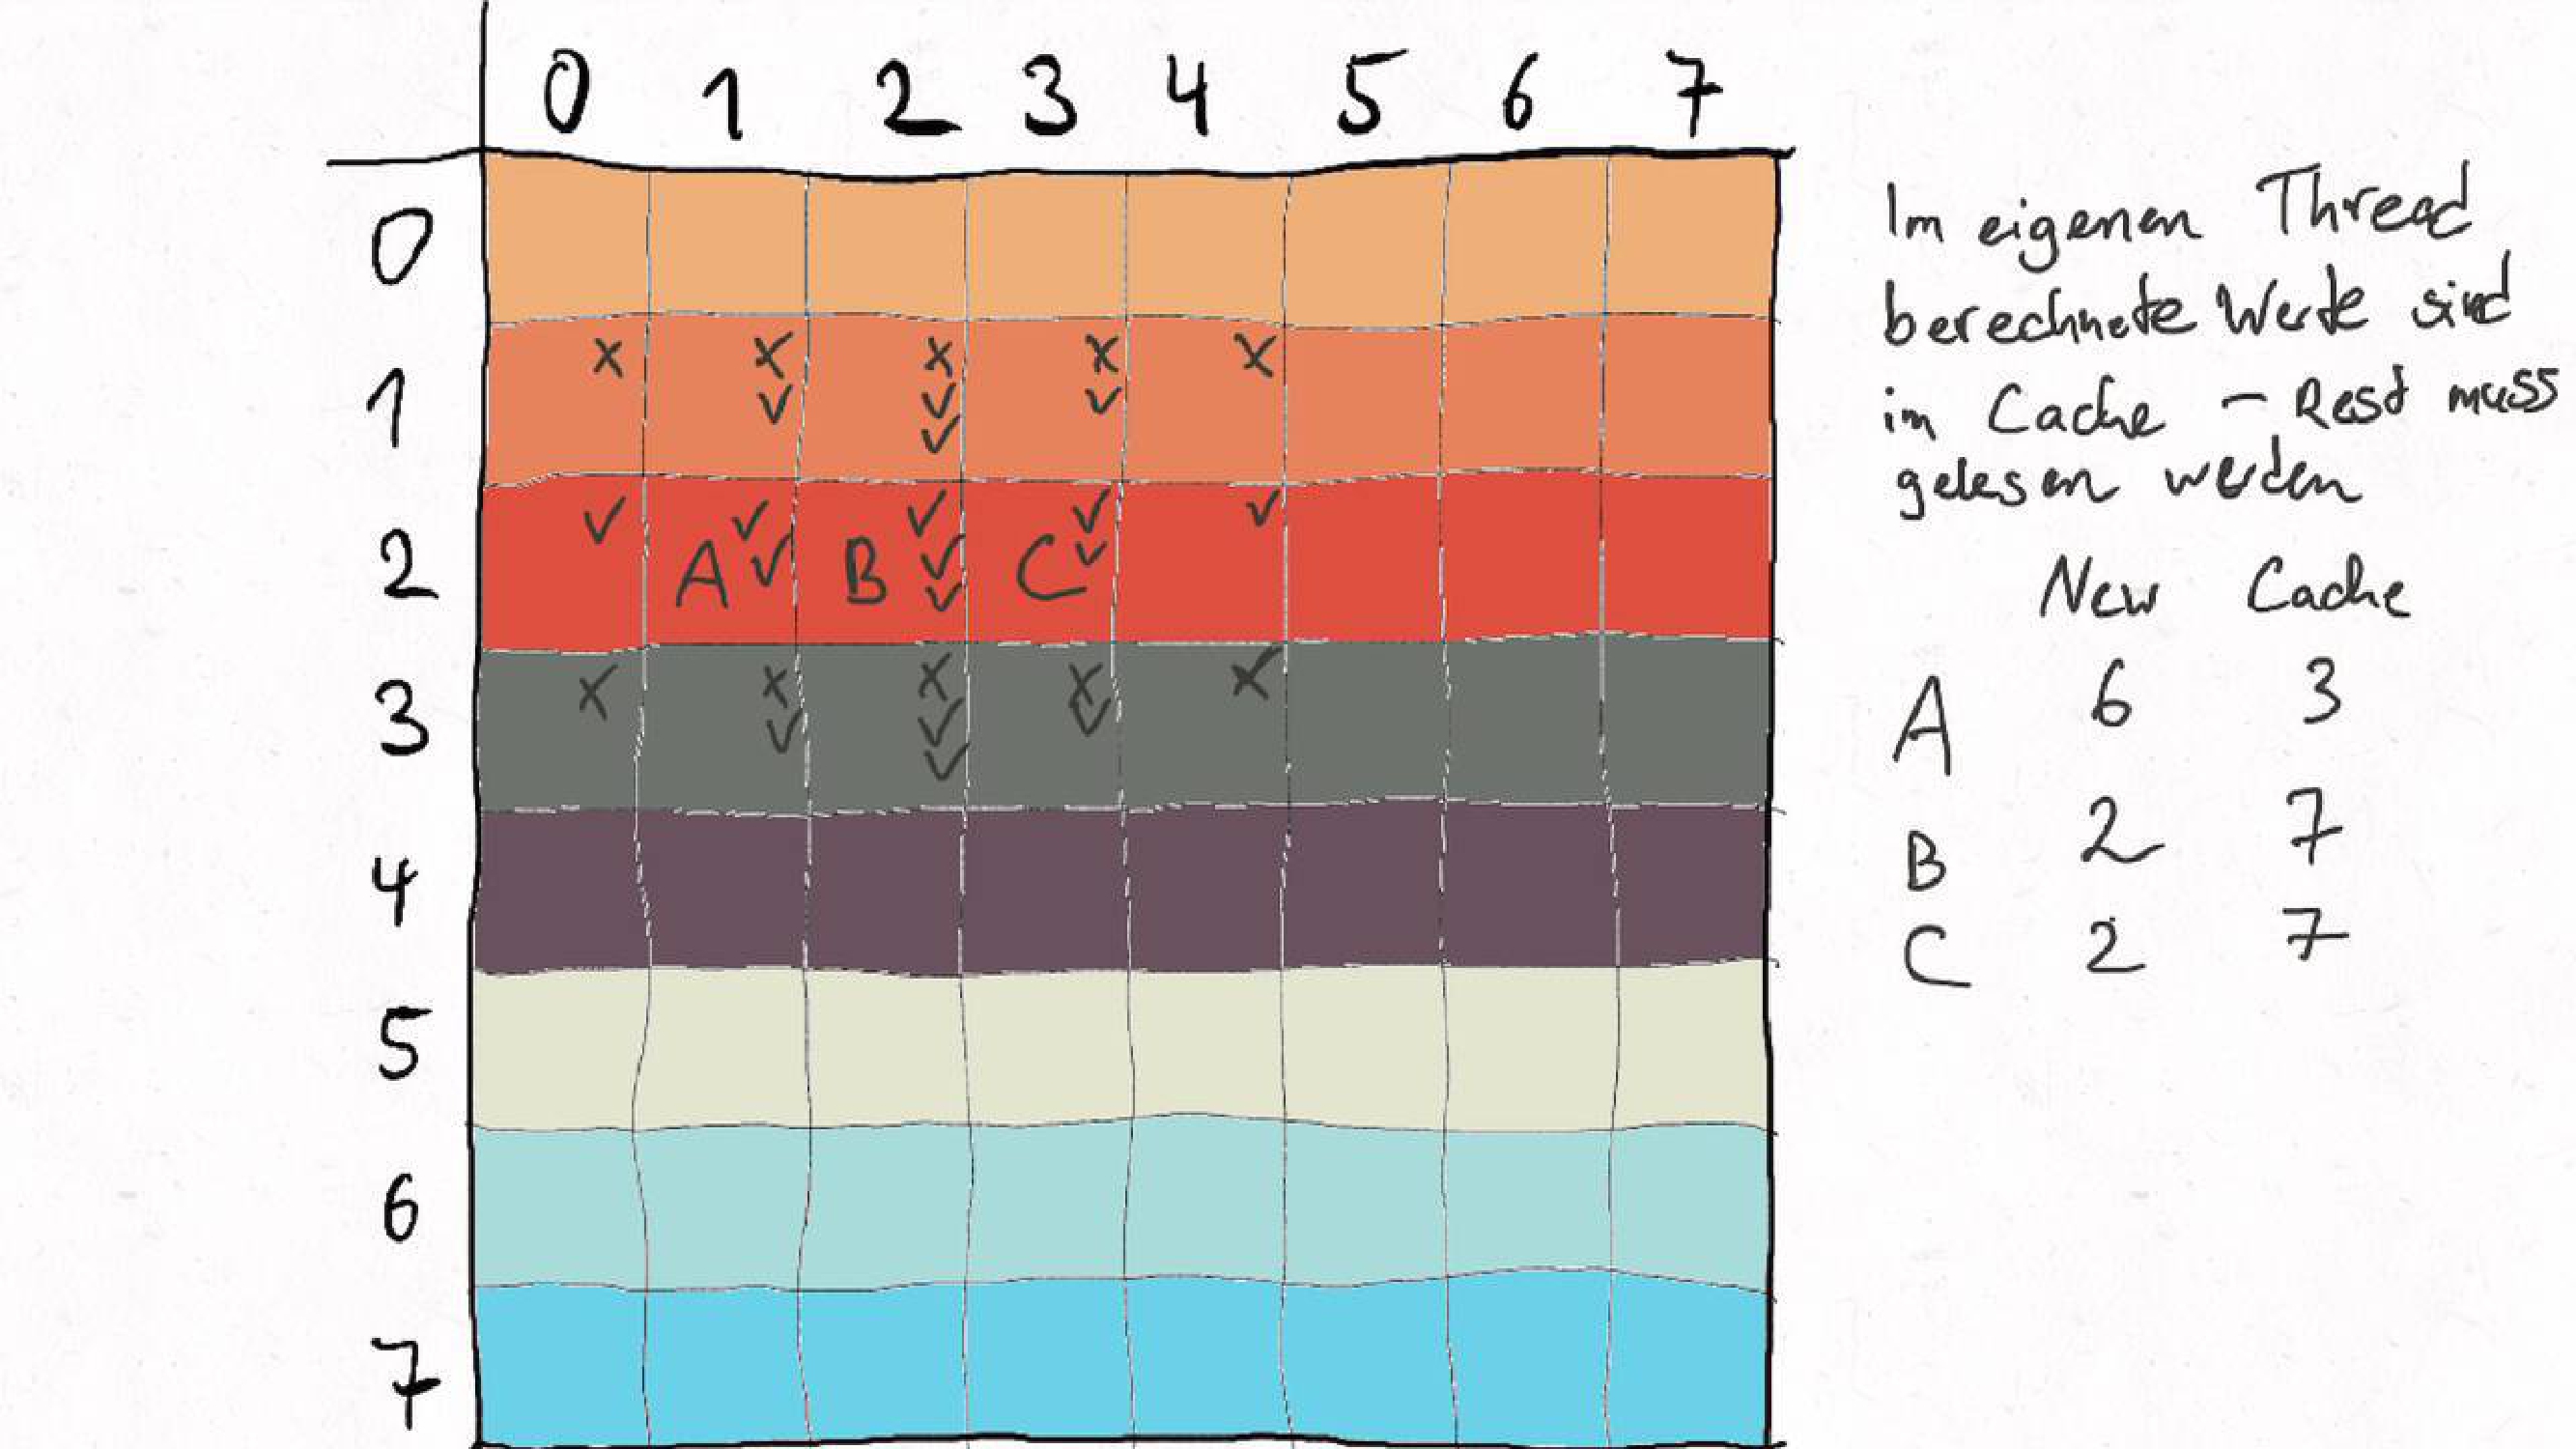 0 1 2 3 4 5 6 7
0
1
2 A B C
3
4
5
6
7
Im eigenen Thread
berechnete Werte sind
im Cache - Rest muss
gelesen werden
New Cache
A 6 3
B 2 7
C 2 7